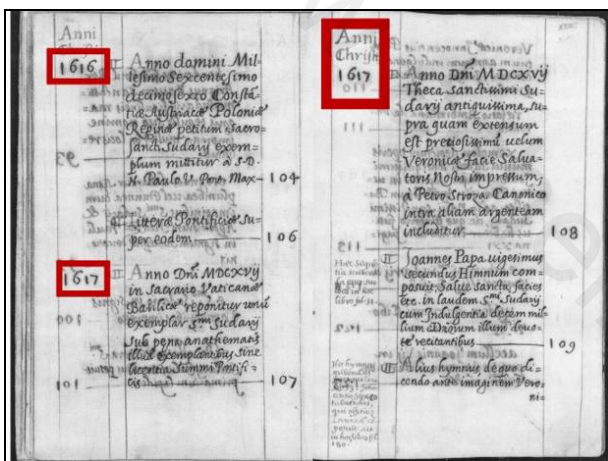 Anni
Christi
1616 Anno domini Mil-
lesimo Sexcentesimo
decimosexto Constã
tiæ Austriacæ Poloniæ
Reginæ petitum sacro-
sancti Sudarij exem-
plum mittitur à S. D.
N. Paulo V. Pont. Max- 104
Litteræ Pontificiæ Su-
per eodem 106
1617 Anno Dñi MDCXVij
in sacrario Vaticanæ
Basilicæ reponitur unũ
exemplar Sudarij
sub pena anathematis
exemplantibus sine
licentia Summi Pontifi-
cis 107
Anni
Christi
1617 Anno Dñi MDCXVij
Theca sanctissimi Su-
darij antiquissima, su-
pra quam extensum
est pretiosissimũ uelum
Veronicæ facie Salua-
toris Nostri impressum,
à Petro Stroza Canonico
intra aliam argenteam
includitur 108
Joannes Papa uigesimus
secundus Himnum com-
posuit, Salue Sancta facies
etc. in laudem Sudarij
cum Indulgentia decem mil-
lium Dierum illum deuo-
tè recitantibus 109
Alius hymnus, de quo di-
cendo ante imaginem Vero-
ni-